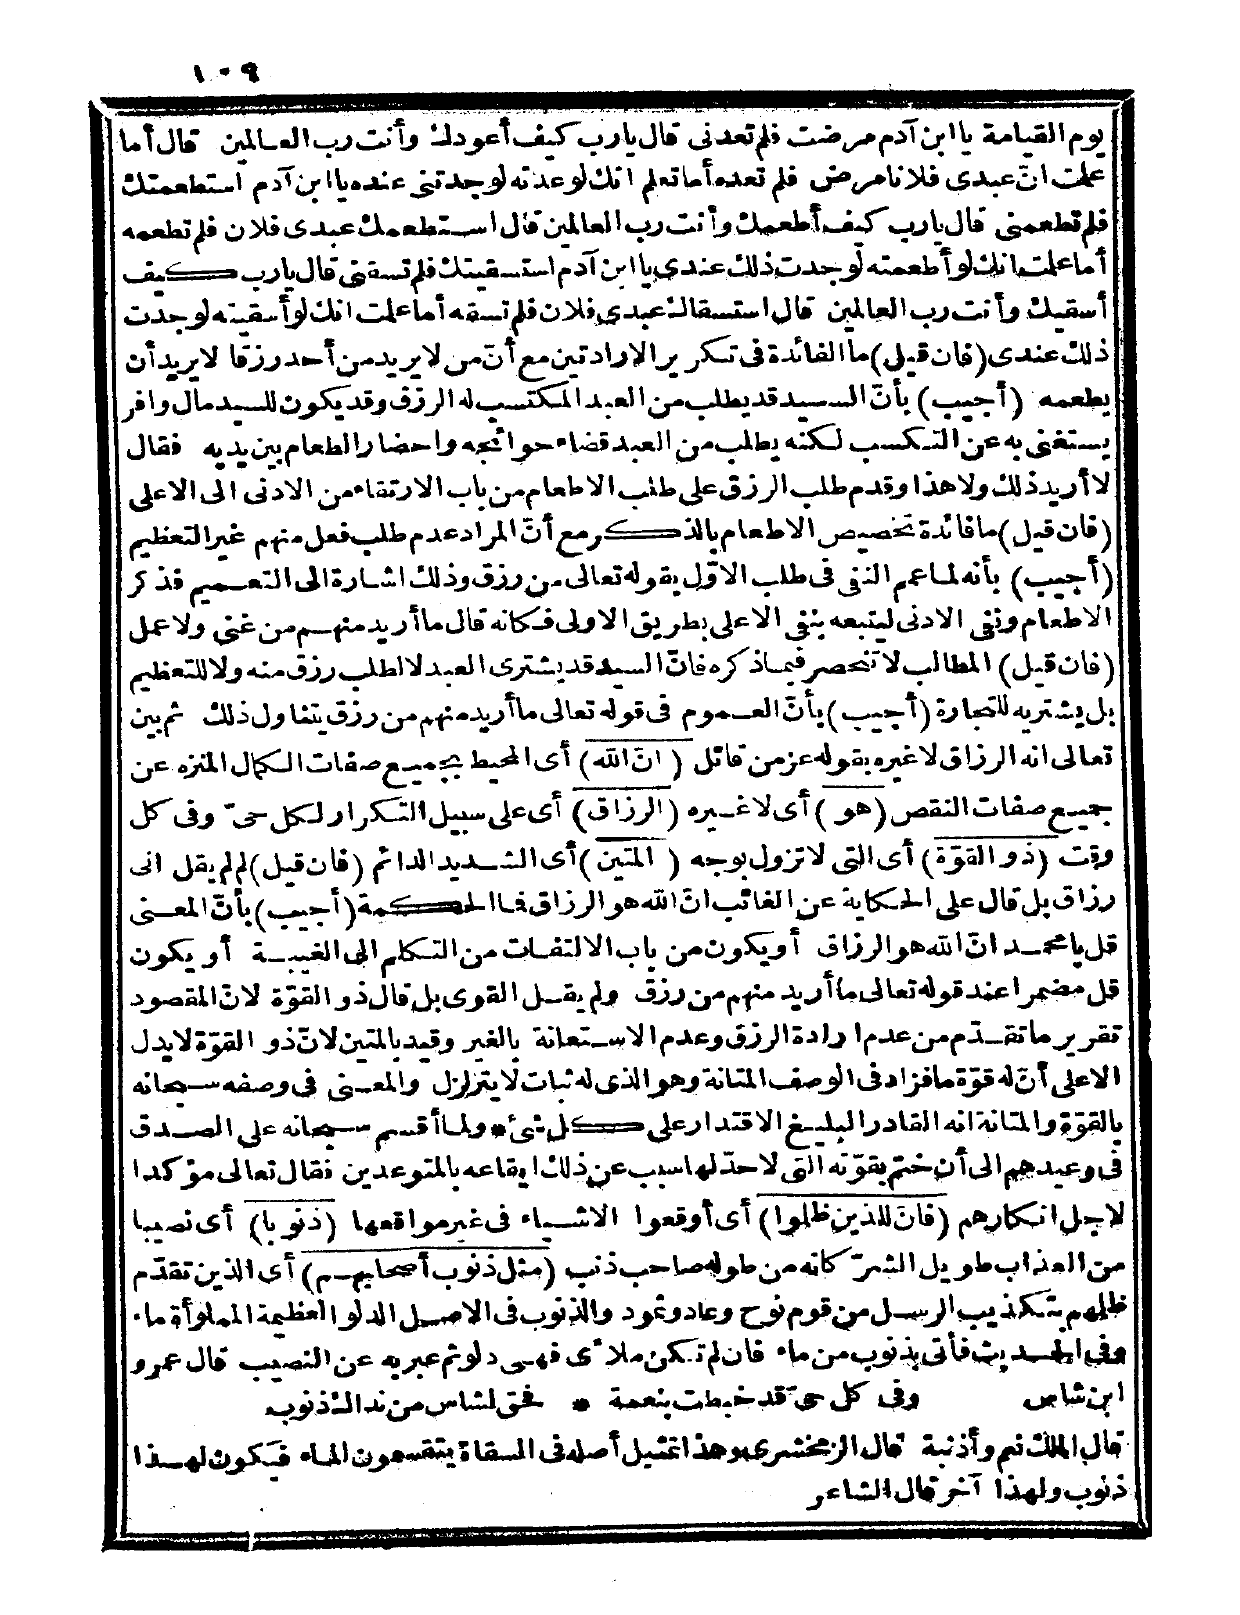 ١٠٩
يوم القيامة يا ابن آدم مرضت فلم تعدنى قال يارب كيف أعودك وأنت رب العالمين قال أما
علمت انّ عبدى فلانا مرض فلم تعده أما تعلم انك لو عدته لوجدتنى عنده يا ابن آدم استطعمتك
فلم تطعمنى قال يارب كيف أطعمك وأنت رب العالمين قال استطعمك عبدى فلان فلم تطعمه
أما علمت انك لو أطعمته لوجدت ذلك عندى يا ابن آدم استسقيتك فلم تسقنى قال يارب كيف
أسقيك وأنت رب العالمين قال استسقاك عبدى فلان فلم تسقه أما علمت انك لو أسقيته لوجدت
ذلك عندى (فان قيل) ما الفائدة فى تكرير الارادتين مع أنّ من لا يريد من أحد رزقا لا يريد أن
يطعمه (أجيب) بأنّ السيد قد يطلب من العبد المكتسب له الرزق وقد يكون للسيد مال وافر
يستغنى به عن التكسب لكنه يطلب من العبد قضاء حوائجه واحضار الطعام بين يديه فقال
لا أريد ذلك ولا هذا وقدم طلب الرزق على طلب الاطعام من باب الارتقاء من الادنى الى الاعلى
(فان قيل) ما فائدة تخصيص الاطعام بالذكر مع أنّ المراد عدم طلب فعل منهم غير التعظيم
(أجيب) بأنه لما عم النفى فى طلب الاوّل بقوله تعالى من رزق وذلك اشارة الى التعميم فذكر
الاطعام ونفى الادنى ليتبعه بنفى الاعلى بطريق الاولى فكانه قال ما أريد منهم من غنى ولا عمل
(فان قيل) المطالب لا تنحصر فيما ذكره فانّ السيد قد يشترى العبد لا لطلب رزق منه ولا للتعظيم
بل يشتريه للتجارة (أجيب) بأنّ العموم فى قوله تعالى ما أريد منهم من رزق يتناول ذلك ثم بين
تعالى انه الرزاق لا غيره بقوله عز من قائل (انّ الله) أى المحيط بجميع صفات الكمال المنزه عن
جميع صفات النقص (هو) أى لا غيره (الرزاق) أى على سبيل التكرار لكل حىّ وفى كل
وقت (ذو القوّة) أى التى لا تزول بوجه (المتين) أى الشديد الدائم (فان قيل) لم لم يقل انى
رزاق بل قال على الحكاية عن الغائب انّ الله هو الرزاق فما الحكمة (أجيب) بأنّ المعنى
قل يا محمد انّ الله هو الرزاق أو يكون من باب الالتفات من التكلم الى الغيبة أو يكون
قل مضمرا عند قوله تعالى ما أريد منهم من رزق ولم يقل القوى بل قال ذو القوّة لانّ المقصود
تقرير ما تقدّم من عدم ارادة الرزق وعدم الاستعانة بالغير وقيد بالمتين لانّ ذو القوّة لا يدل
الا على أنّ له قوّة ما فزاد فى الوصف المتانة وهو الذى له ثبات لا يتزلزل والمعنى فى وصفه سبحانه
بالقوّة والمتانة انه القادر البليغ الاقتدار على كل شئ * ولما أقسم سبحانه على الصدق
فى وعيدهم الى أن ختم بقوّته التى لا حدّ لها سبب عن ذلك ايقاعه بالمتوعدين فقال تعالى مؤكدا
لاجل انكارهم (فانّ للذين ظلوا) أى أوقعوا الاشياء فى غير مواقعها (ذنوبا) أى نصيبا
من العذاب طويل الشرّ كانه من طوله صاحب ذنب (مثل ذنوب أصحابهم) أى الذين تقدّم
ظلمهم بتكذيب الرسل من قوم نوح وعاد وثمود والذنوب فى الاصل الدلو العظيمة المملوأة ماء
وفى الحديث فأتى بذنوب من ماء فان لم تكن ملأى فهى دلو ثم عبر به عن النصيب قال عمرو
ابن شاس وفى كل حىّ قد خبطت بنعمة * فحق لشاس من نداك ذنوب
قال الملك نعم وأذنبة قال الزمخشرى وهذا تمثيل أصله فى السقاة يتقسمون الماء فيكون لهذا
ذنوب ولهذا آخر قال الشاعر